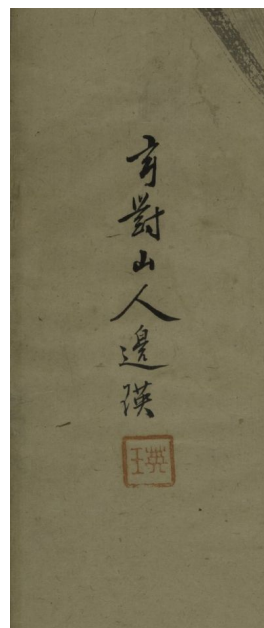 玄對山人邊瑛
瑛